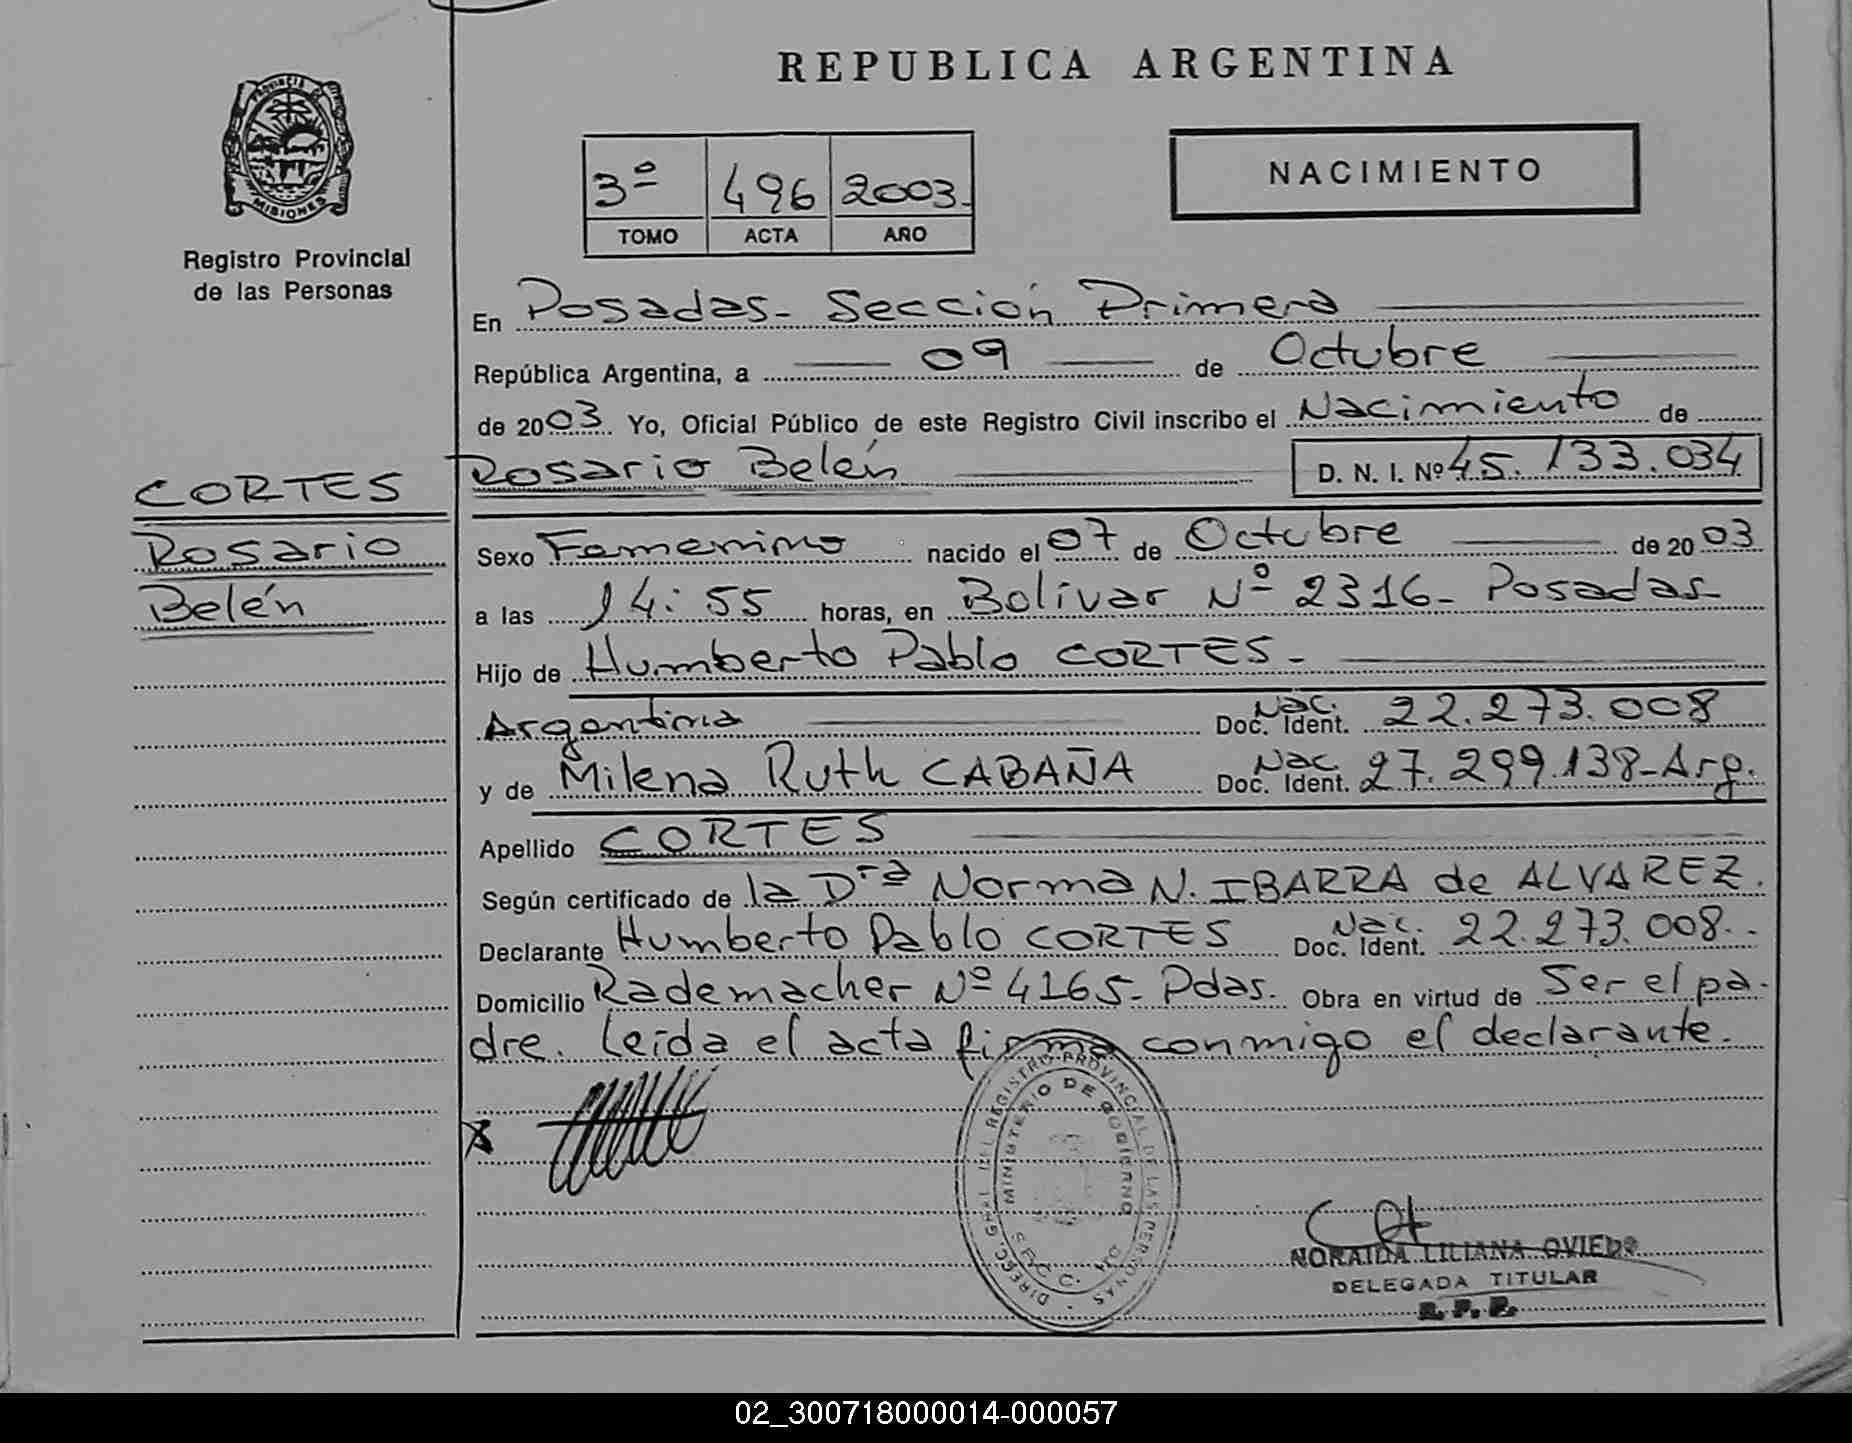 REPUBLICA ARGENTINA
PROVINCIA DE
MISIONES
Registro Provincial
de las Personas
3º 496 2003.
TOMO ACTA AÑO
NACIMIENTO
En Posadas - Sección Primera
República Argentina, a 09 de Octubre
de 2003. Yo, Oficial Público de este Registro Civil inscribo el Nacimiento de
Rosario Belén D. N. I. Nº 45.133.034
CORTES
Rosario
Belén
Sexo Femenino nacido el 07 de Octubre de 2003
a las 14:55 horas, en Bolívar Nº 2316 - Posadas -
Hijo de Humberto Pablo CORTES -
Argentina Nac. Doc. Ident. 22.273.008
y de Milena Ruth CABAÑA Nac. Doc. Ident. 27.299.138 - Arg.
Apellido CORTES
Según certificado de la Drª Norma N. IBARRA de ALVAREZ.
Declarante Humberto Pablo CORTES Nac. Doc. Ident. 22.273.008 -.
Domicilio Rademacher Nº 4165 - Pdas. Obra en virtud de Ser el pa-
dre. Leída el acta firma conmigo el declarante.
X
DIRECC. GRAL. DEL REGISTRO PROVINCIAL DE LAS PERSONAS
MINISTERIO DE GOBIERNO
NORAIDA LILIANA OVIEDO
DELEGADA TITULAR
R. P. P.
02_300718000014-000057